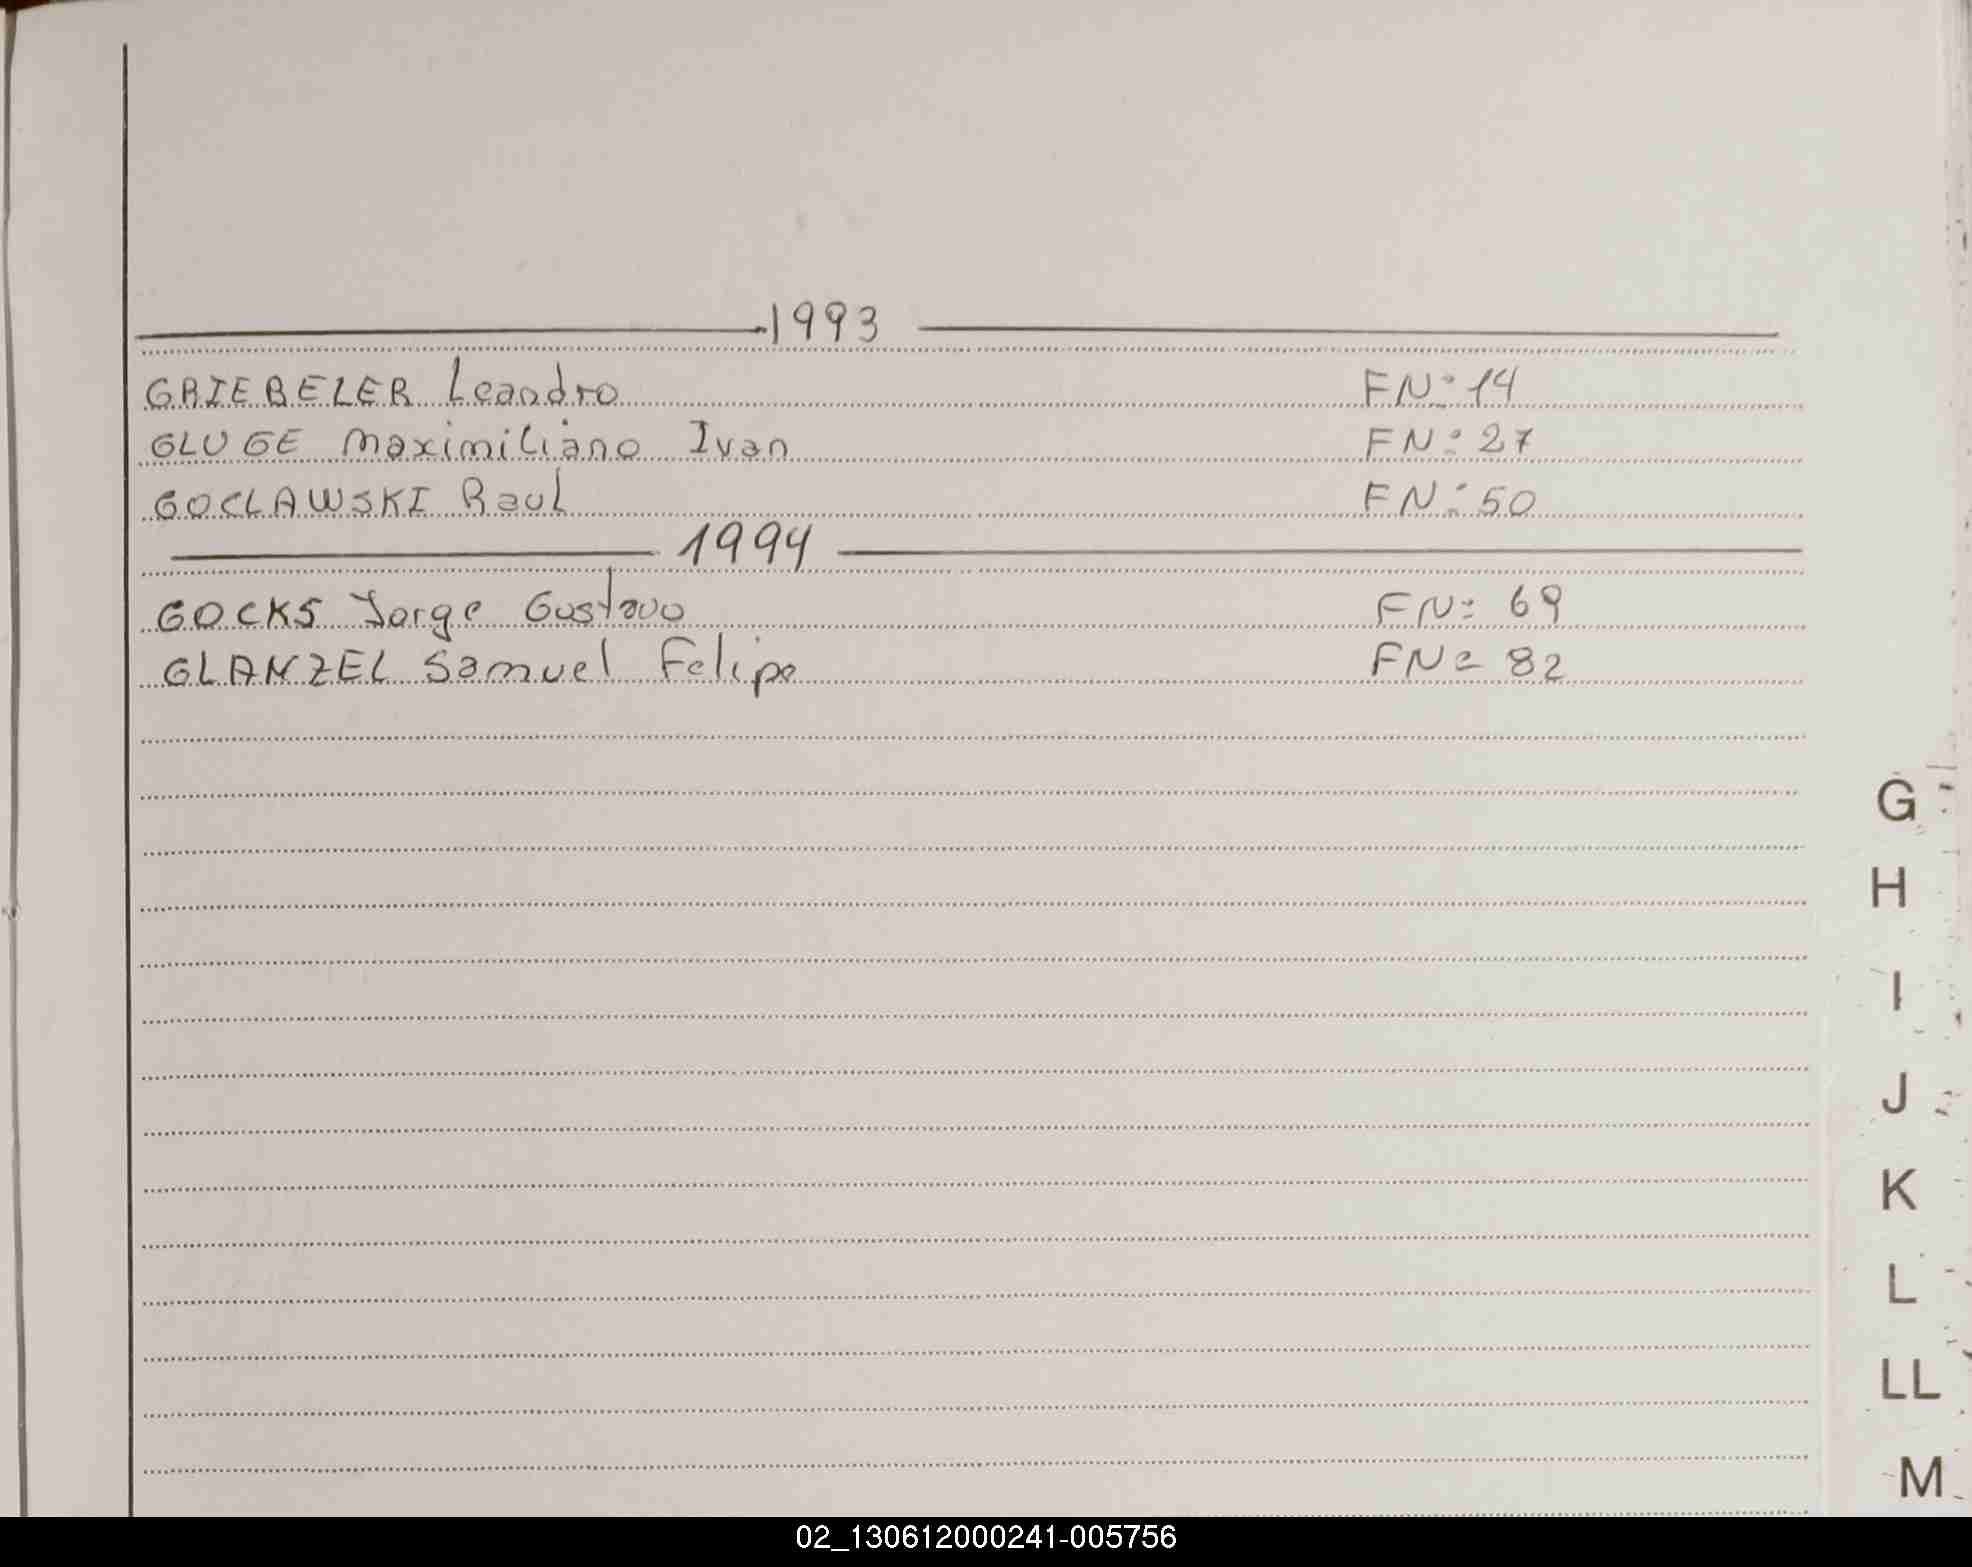 1993
GRIEBELER Leandro FNº 14
GLUGE Maximiliano Ivan FNº 27
GOCLAWSKI Raul FNº 50
1994
GOCKS Jorge Gustavo FN: 69
GLANZEL Samuel Felipe FN= 82
G
H
I
J
K
L
LL
M
02_130612000241-005756